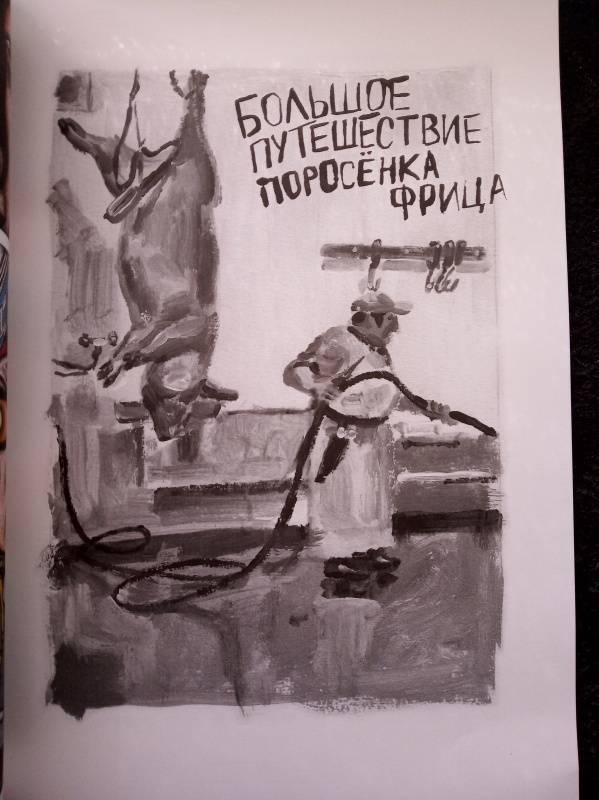 БОЛЬШОЕ
ПУТЕШЕСТВИЕ
ПОРОСЁНКА
ФРИЦА